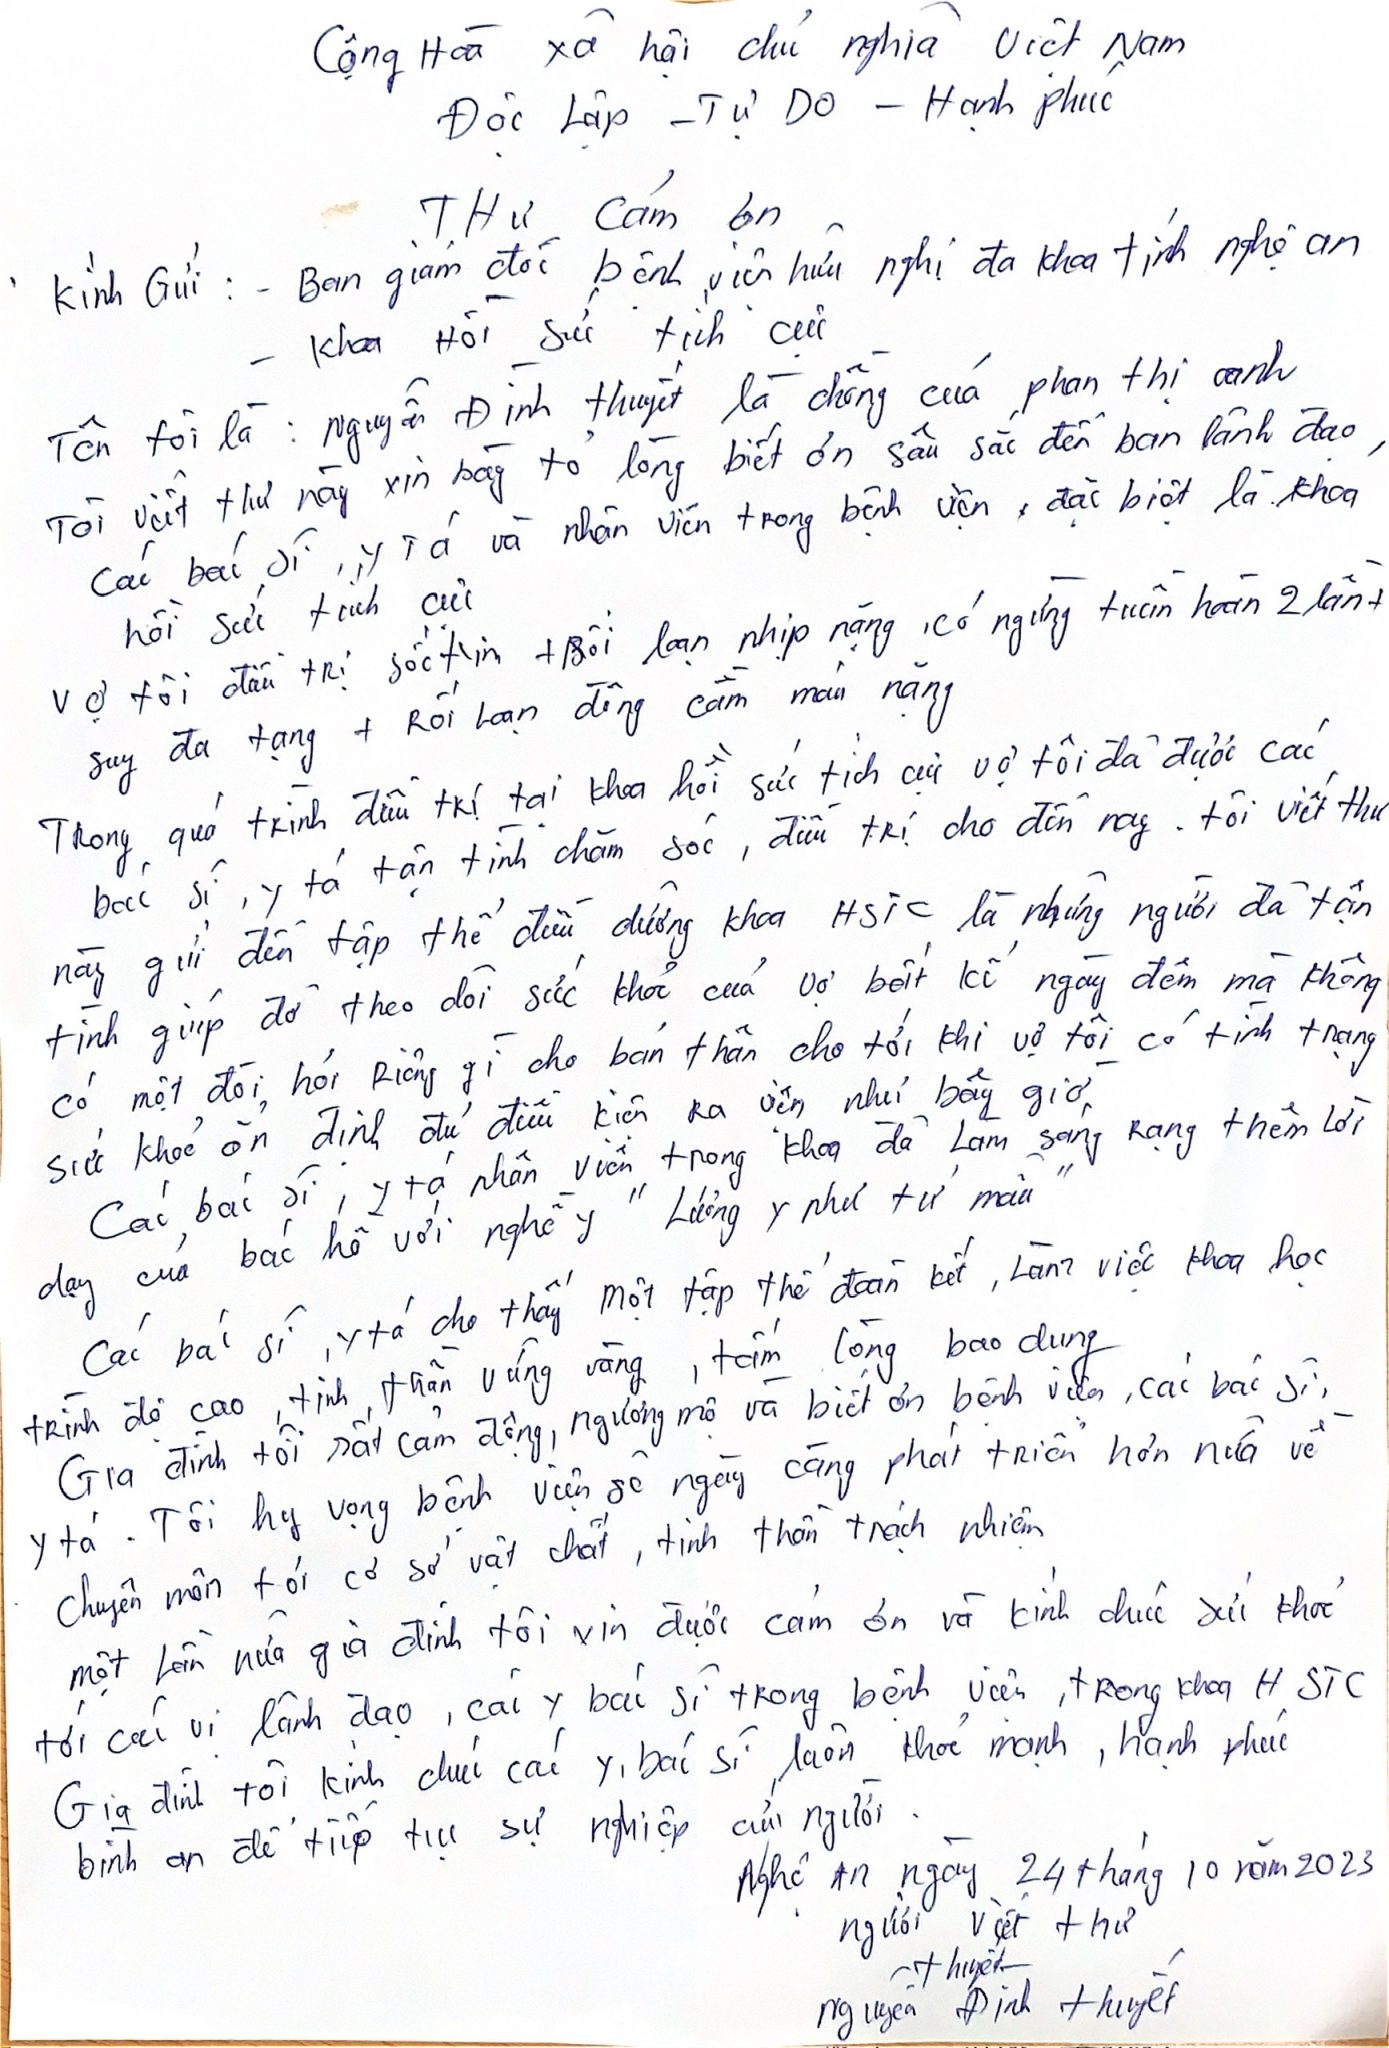 Cộng Hoà xã hội chủ nghĩa Việt Nam
Độc Lập - Tự DO - Hạnh phúc
THƯ Cảm ơn
Kính Gửi : - Ban giám đốc bệnh viện hữu nghị đa khoa tỉnh nghệ an
- Khoa Hồi sức tích cực
Tên tôi là : Nguyễn Đình thuyết là chồng của phan thị oanh
Tôi viết thư này xin bày tỏ lòng biết ơn sâu sắc đến ban lãnh đạo,
Các bác sĩ, y Tá và nhân viên trong bệnh viện, đặc biệt là khoa
hồi sức tích cực
Vợ tôi điều trị sốc tim + Rối loạn nhịp nặng, có ngừng tuần hoàn 2 lần +
suy đa tạng + Rối Loạn đông cầm máu nặng
Trong quá trình điều trị tại khoa hồi sức tích cực vợ tôi đã được các
bác sĩ, y tá tận tình chăm sóc, điều trị cho đến nay. tôi viết thư
này gửi đến tập thể điều dưỡng khoa HSTC là những người đã tận
tình giúp đỡ theo dõi sức khỏe của vợ bất kể ngày đêm mà không
có một đòi hỏi Riêng gì cho bản thân cho tới khi vợ tôi có tình trạng
sức khoẻ ổn định đủ điều kiện ra viện như bây giờ
Các bác sĩ, y tá nhân viên trong khoa đã Làm sáng Rạng thêm Lời
dạy của bác hồ với nghề y "Lương y như từ mẫu"
Các bác sĩ, y tá cho thấy một tập thể đoàn kết, Làm việc khoa học
trình độ cao, tinh thần vững vàng, tấm lòng bao dung
Gia đình tôi rất cảm động, ngưỡng mộ và biết ơn bệnh viện, các bác sĩ,
y tá. Tôi hy vọng bệnh viện sẽ ngày càng phát triển hơn nữa về
chuyên môn tới cơ sở vật chất, tinh thần trách nhiệm
một Lần nữa gia đình tôi xin được cảm ơn và kính chúc sức khỏe
tới các vị lãnh đạo, các y bác sĩ trong bệnh viện, trong khoa HSTC
Gia đình tôi kính chúc các y, bác sĩ luôn khỏe mạnh, hạnh phúc
bình an để tiếp tục sự nghiệp cứu người.
Nghệ An ngày 24 tháng 10 năm 2023
người viết thư
thuyết
Nguyễn Đình thuyết